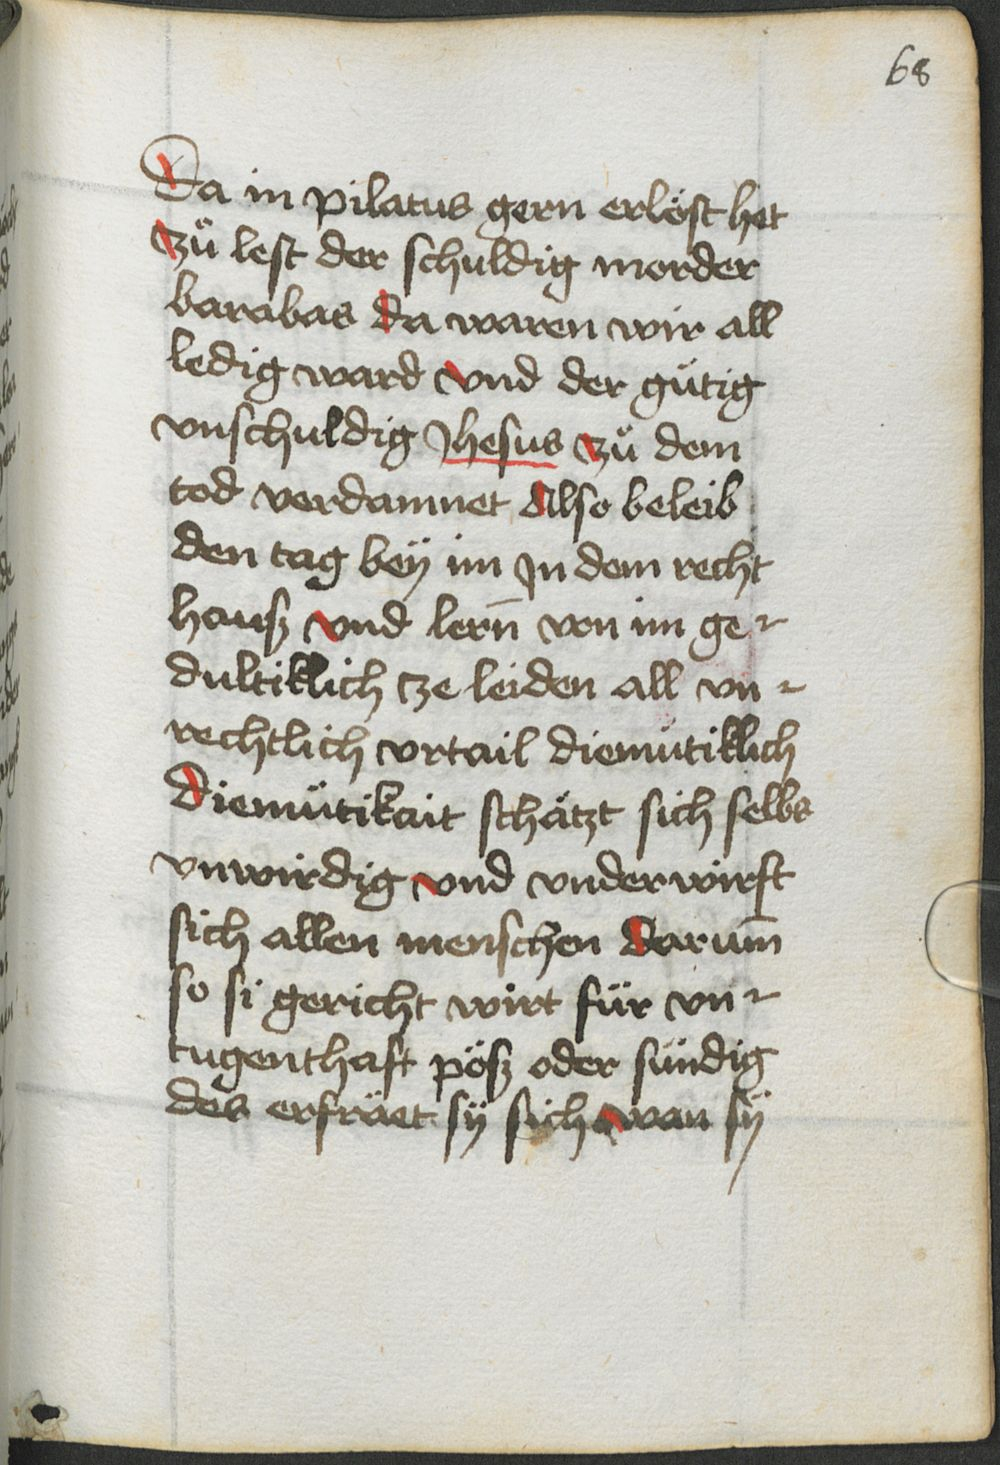 68
Da in pilatus gern erlöst het
zů lest der schuldig morder
barabas da waren wir all
ledig ward vnd der gütig
vnschuldig Jhesus zů dem
tod verdamnet Also beleib
den tag beÿ im Jn dem recht
hausz vnd lern̄ von im ge-
dultiklich tze leiden all vn-
rechtlich vrtail diemütiklich
Diemütikait schätzt sich selbs
vnwirdig vnd vnderwirft
sich allen menschen Darum̄
so si gericht wirt für vn-
tugenthaft pösz oder sündig
des erfräet sÿ sich wan sÿ